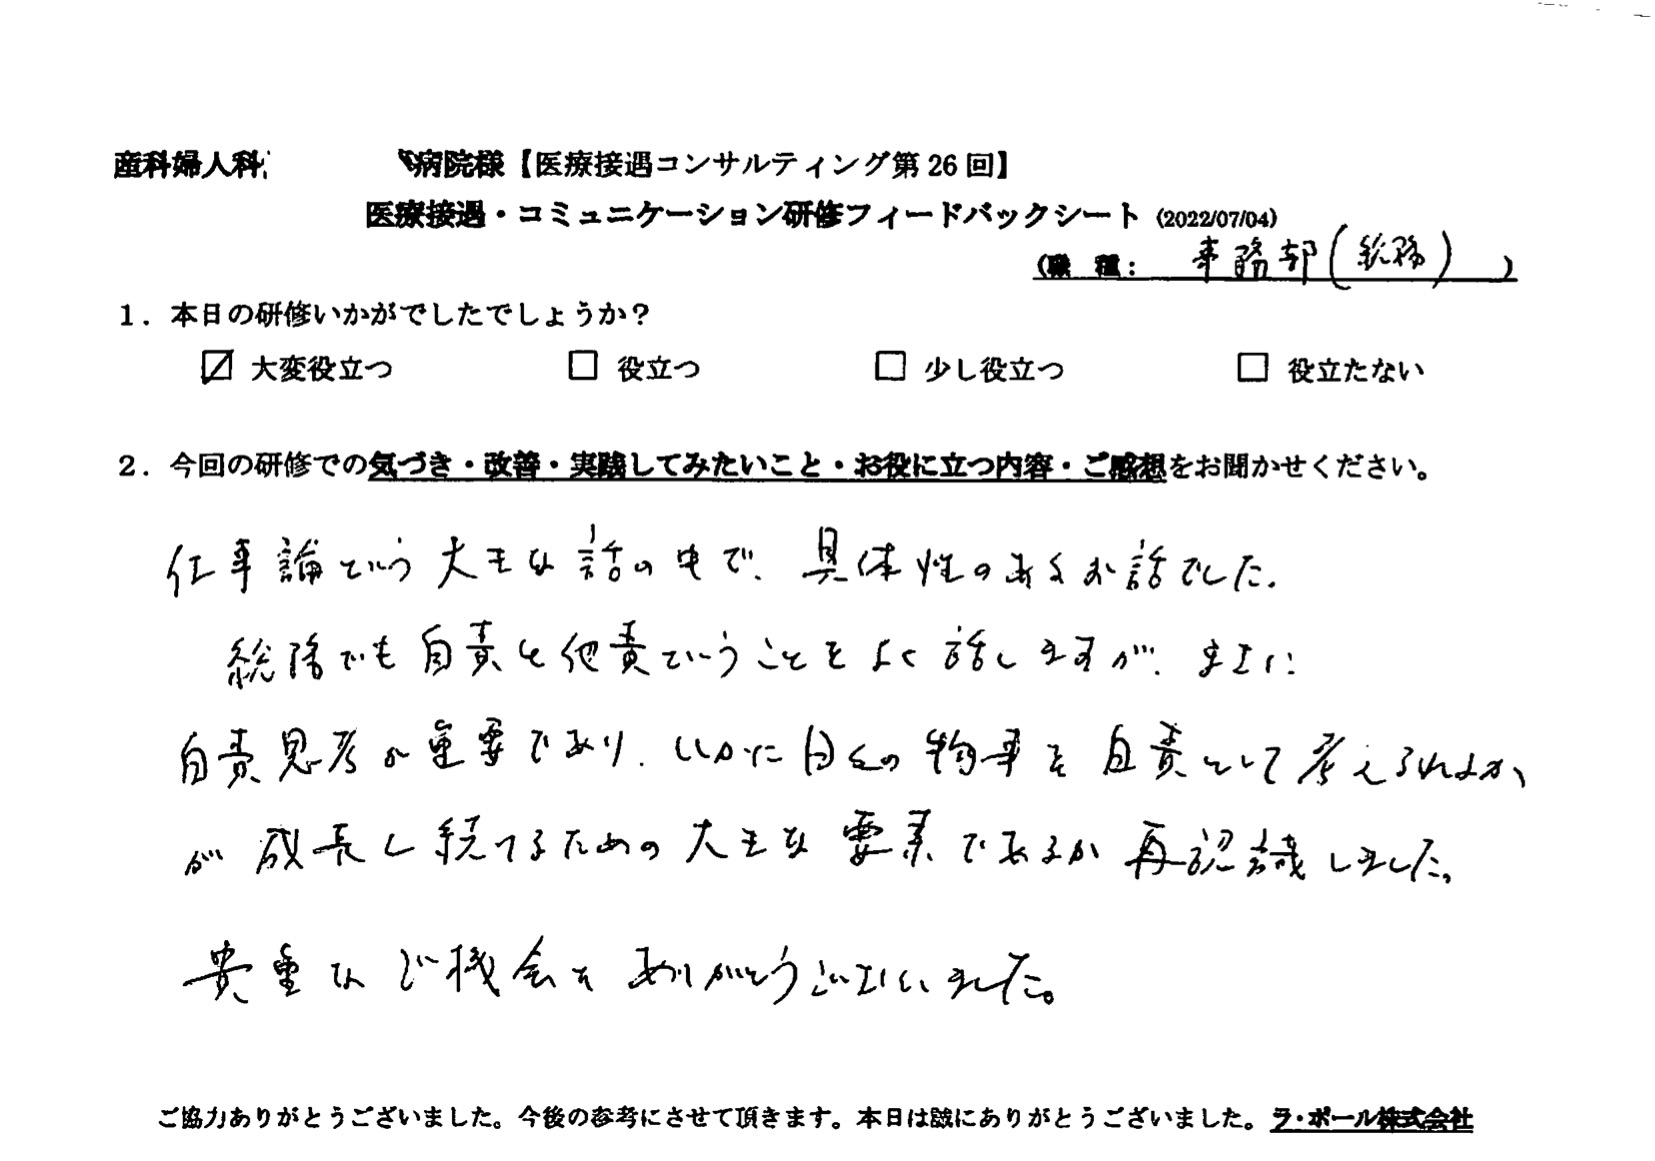 産科婦人科 病院様【医療接遇コンサルティング第26回】
医療接遇・コミュニケーション研修フィードバックシート (2022/07/04)
(職 種: 事務部(総務) )
1. 本日の研修いかがでしたでしょうか?
☑ 大変役立つ □ 役立つ □ 少し役立つ □ 役立たない
2. 今回の研修での気づき・改善・実践してみたいこと・お役に立つ内容・ご感想をお聞かせください。
仕事論という大きな話の中で、具体性のあるお話でした。
総務でも自責と他責ということをよく話しますが、まさに
自責思考が重要であり、いかに日々の物事を自責として考えられるか、
が成長し続てるための大きな要素であるか再認識しました。
貴重なご機会をありがとうございました。
ご協力ありがとうございました。今後の参考にさせて頂きます。本日は誠にありがとうございました。ラ・ポール株式会社